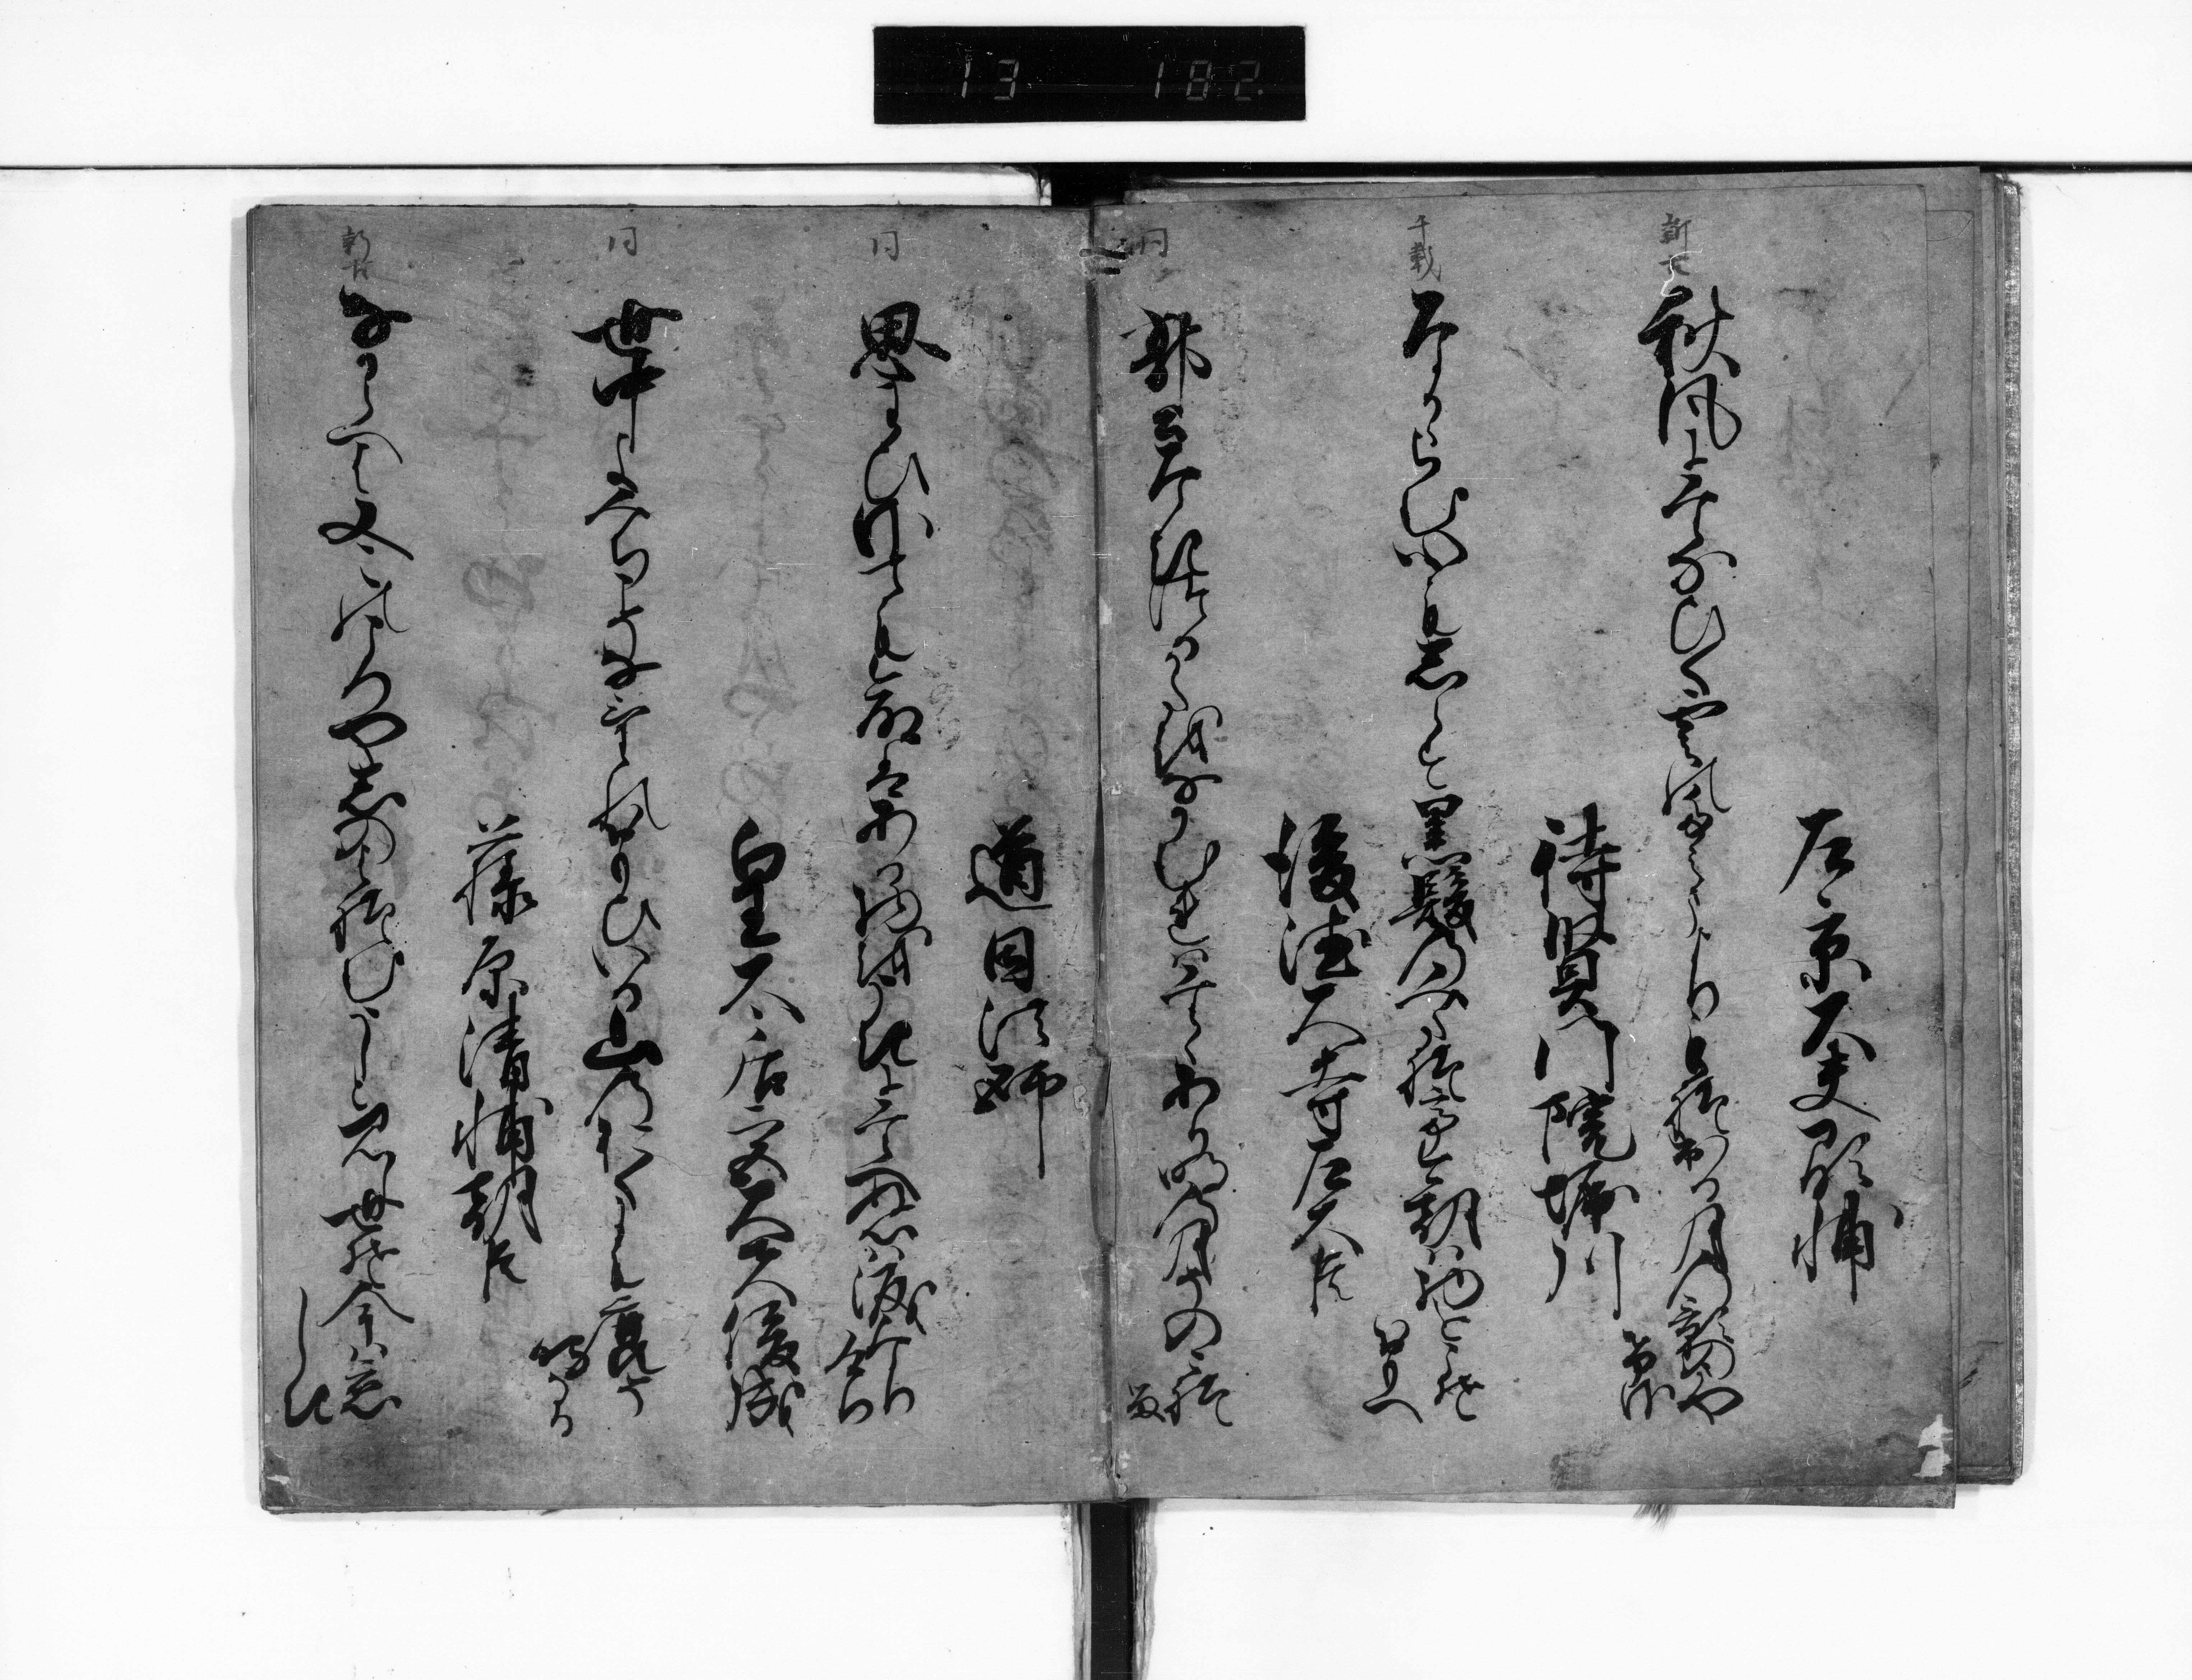 13 182
左京大夫顕輔
新古
秋風にたなひく雲のたえまよりもれ出る月の影のさや
けさ
待賢門院堀川
千載
なかからむ心もしらす黒髪のみたれてけさは物をこそ
おもへ
後徳大寺左大臣
同
郭公なきつるかたをなかむれはたゝあり明の月そのこれ
る
道因法師
同
思ひわひさても命はある物をうきにたえぬは涙なり
けり
皇太后宮大夫俊成
同
世中よみちこそなけれおもひいる山のおくにも鹿そ
鳴なる
藤原清輔朝臣
新古
なからへは又此ころやしのはれむうしとみし世そ今は恋
しき